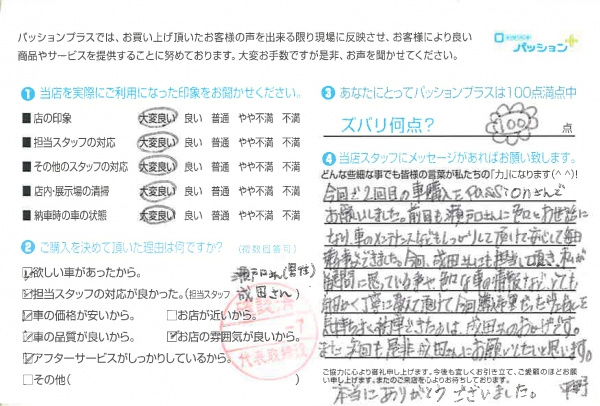 パッションプラスでは、お買い上げ頂いたお客様の声を出来る限り現場に反映させ、お客様により良い
商品やサービスを提供することに努めております。大変お手数ですが是非、お声を聞かせてください。
パッション+
① 当店を実際にご利用になった印象をお聞かせください。
■店の印象 大変良い 良い 普通 やや不満 不満
■担当スタッフの対応 大変良い 良い 普通 やや不満 不満
■その他のスタッフの対応 大変良い 良い 普通 やや不満 不満
■店内・展示場の清掃 大変良い 良い 普通 やや不満 不満
■納車時の車の状態 大変良い 良い 普通 やや不満 不満
② ご購入を決めて頂いた理由は何ですか? (複数回答可)
☑欲しい車があったから。 瀬戸口さん(男性)
☑担当スタッフの対応が良かった。(担当スタッフ 成田さん )
☑車の価格が安いから。 □お店が近いから。
☑車の品質が良いから。 ☑お店の雰囲気が良いから。
☑アフターサービスがしっかりしているから。
□その他( )
代表取締役
③ あなたにとってパッションプラスは100点満点中
ズバリ何点? 100 点
④ 当店スタッフにメッセージがあればお願い致します。
どんな些細な事でも皆様の言葉が私たちの「力」になります(^^)!
今回が2回目の車購入でpassionさんで
お願いしました。前回も瀬戸口さんに色々とお世話に
なり、車のメンテナンスなどもしっかりして頂けて安心して毎日
今回、成田さんにも担当して頂き、私が
疑問に思っている事や色々な車の情報などいつも
細かく丁寧に教えて頂けて今回
気持ちよく納車できたのは、成田さんのおかげです。
また次回も是非成田さんにお願いしたいと思います。
ご協力に心より御礼申し上げます。今後も宜しくお引き立て、ご愛顧のほどお願
い申し上げます。またのご来店を心よりお待ちしております。
本当にありがとうございました。